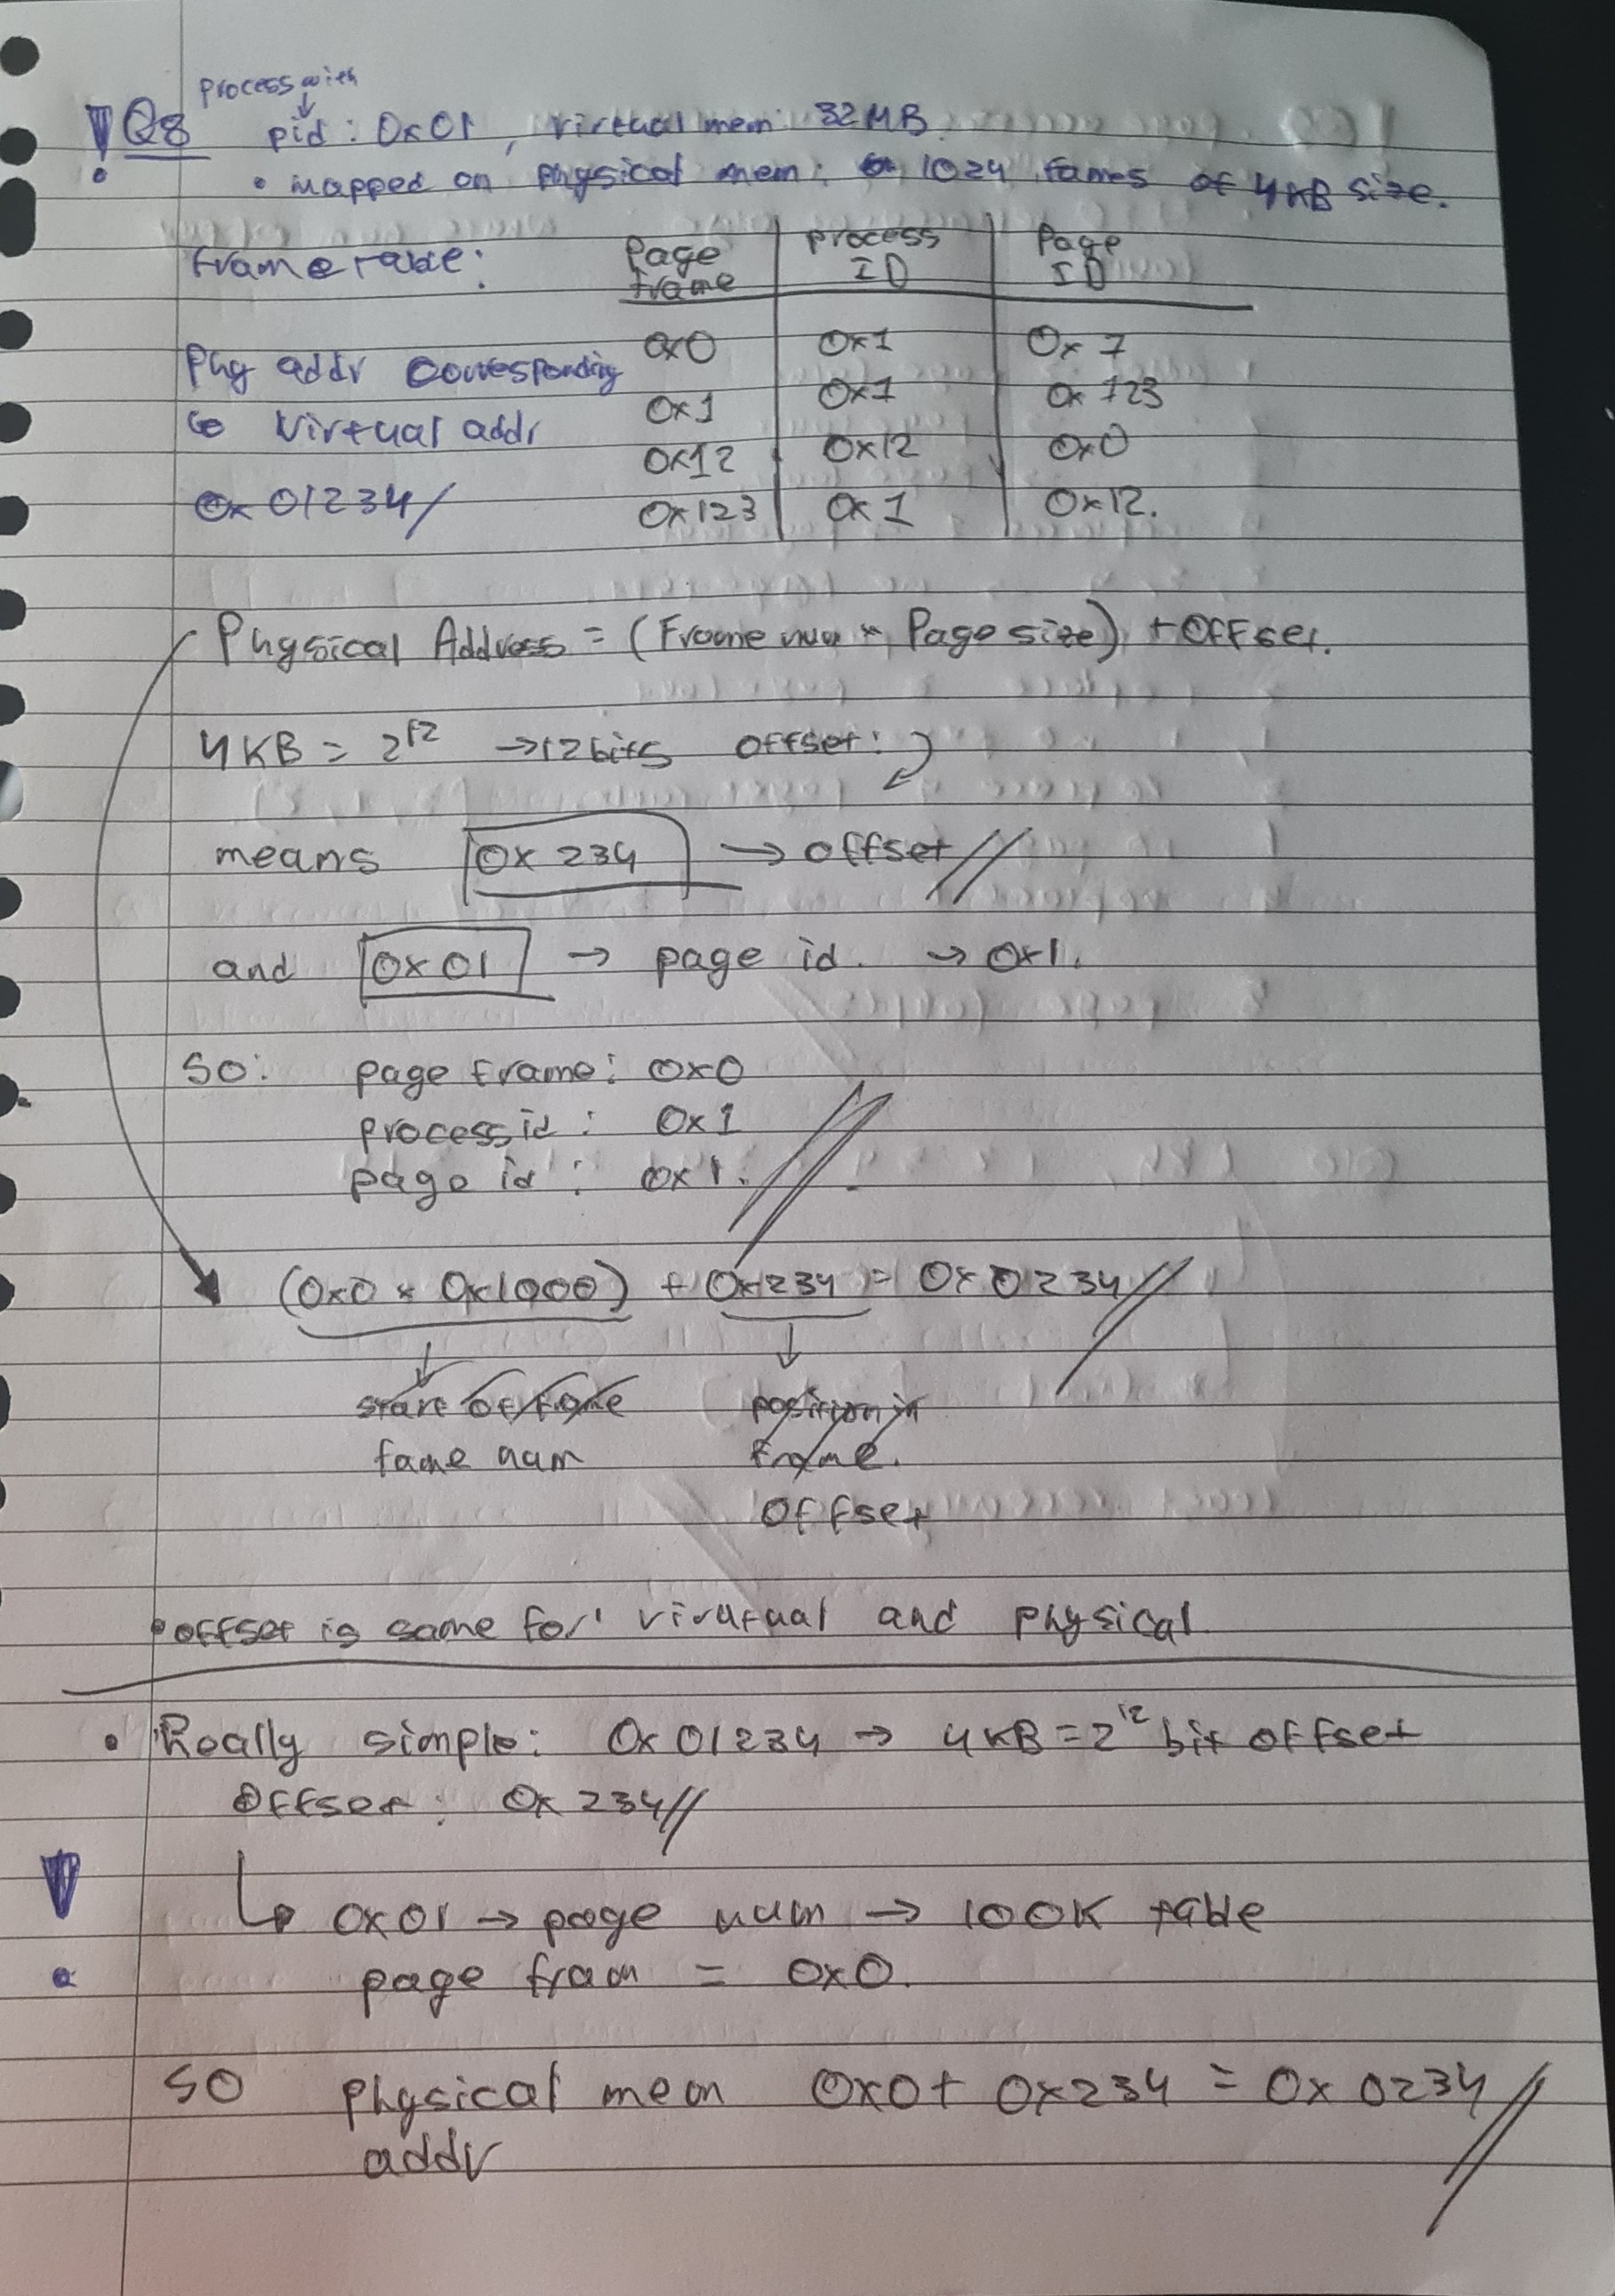 Process with
Q8 pid: 0x01, virtual mem: 32MB.
• mapped on physical mem: 1024 fames of 4KB size.
frame table: Page frame | process ID | Page ID
0x0 | 0x1 | 0x1
Phy addr corresponding
0x1 | 0x1 | 0x123
to virtual addr
0x12 | 0x12 | 0x0
0x01234/
0x123 | 0x1 | 0x12.
Physical Address = (Frame num * Page size) + OFFset.
4KB = 2^12 → 12 bits offset:
means 0x234 → offset//
and 0x01 → page id. → 0x1.
SO: page frame: 0x0
process id: 0x1
page id: 0x1.
(0x0 * 0x1000) + 0x234 = 0x0234//
start of fame position in
fame num frame.
OFFset
• offset is same for virutual and physical
• Really simple: 0x01234 → 4KB = 2^12 bit offset
Offset: 0x234//
↳ 0x01 → page num → look table
page fram = 0x0.
SO physical mem 0x0 + 0x234 = 0x0234//
addr